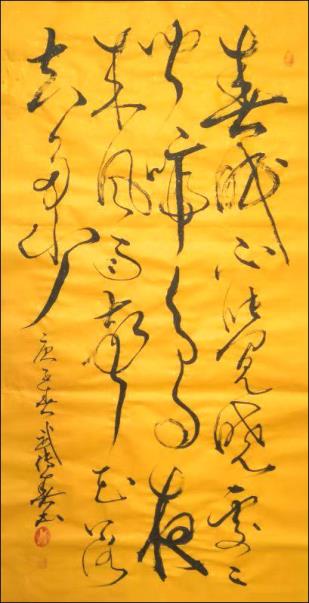 春眠不覺曉處々
聞啼鳥夜
來風雨聲花落
知多少
庚子春